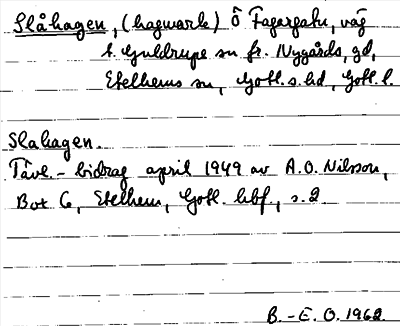 Slåhagen, (hagmark) Ö Fagergahu, väg
t. Guldrupe sn fr. Nygårds, gd,
Etelhems sn, Gotl. s. hd, Gotl. l.
Slahagen.
Tävl.-bidrag april 1949 av A.O. Nilsson,
Bot 6, Etelhem, Gotl. hbf., s. 2
B.-E. O. 1962.